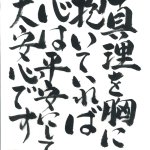 真理を胸に
抱いていれば
心は平安で
大安心です